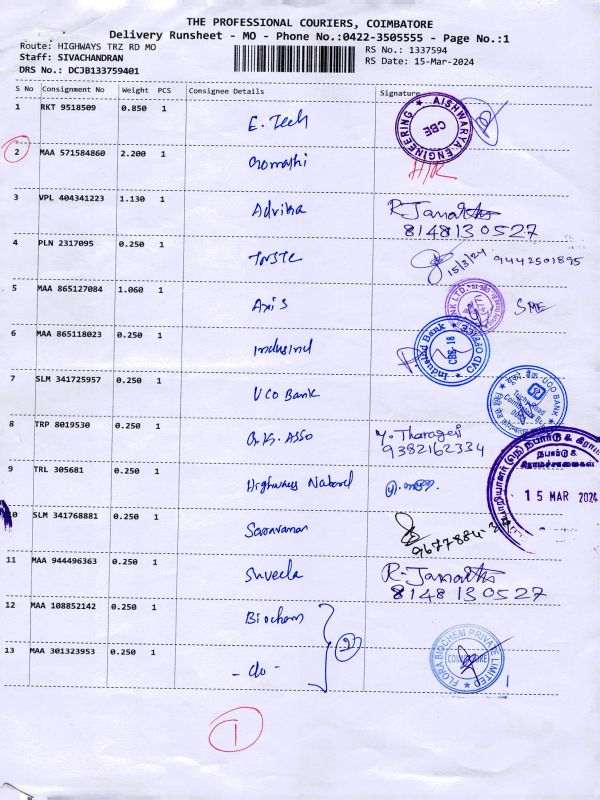 THE PROFESSIONAL COURIERS, COIMBATORE
Delivery Runsheet - MO - Phone No.:0422-3505555 - Page No.:1
Route: HIGHWAYS TRZ RD MO
RS No.: 1337594
Staff: SIVACHANDRAN
RS Date: 15-Mar-2024
DRS No.: DCJB133759401
S No Consignment No Weight PCS Consignee Details Signature
1 RKT 9518509 0.850 1 E. Tech AISHWARYA ENGINEERING CBE
2 MAA 571584860 2.200 1 Gomathi
3 VPL 404341223 1.130 1 Advika R. Janatha
8148130527
4 PLN 2317095 0.250 1 TNSTC 15/3/24 9442501895
5 MAA 865127084 1.060 1 Axis SME
6 MAA 865118023 0.250 1 Indusind IndusInd Bank CBE-18
7 SLM 341725957 0.250 1 UCO Bank यूको बैंक UCO BANK
Trichy Road
8 TRP 8019530 0.250 1 G.K. Asso Y. Tharageri
9382162334
9 TRL 305681 0.250 1 Highways Nabard நபார்டு &
கிராமச்சாலைகள்
15 MAR 2024
10 SLM 341768881 0.250 1 Saravanan
11 MAA 944496363 0.250 1 Suveela R. Janatha
8148130527
12 MAA 108852142 0.250 1 Biochem
13 MAA 301323953 0.250 1 - do - 2 FLORA BIOCHEM PRIVATE LIMITED COIMBATORE
1